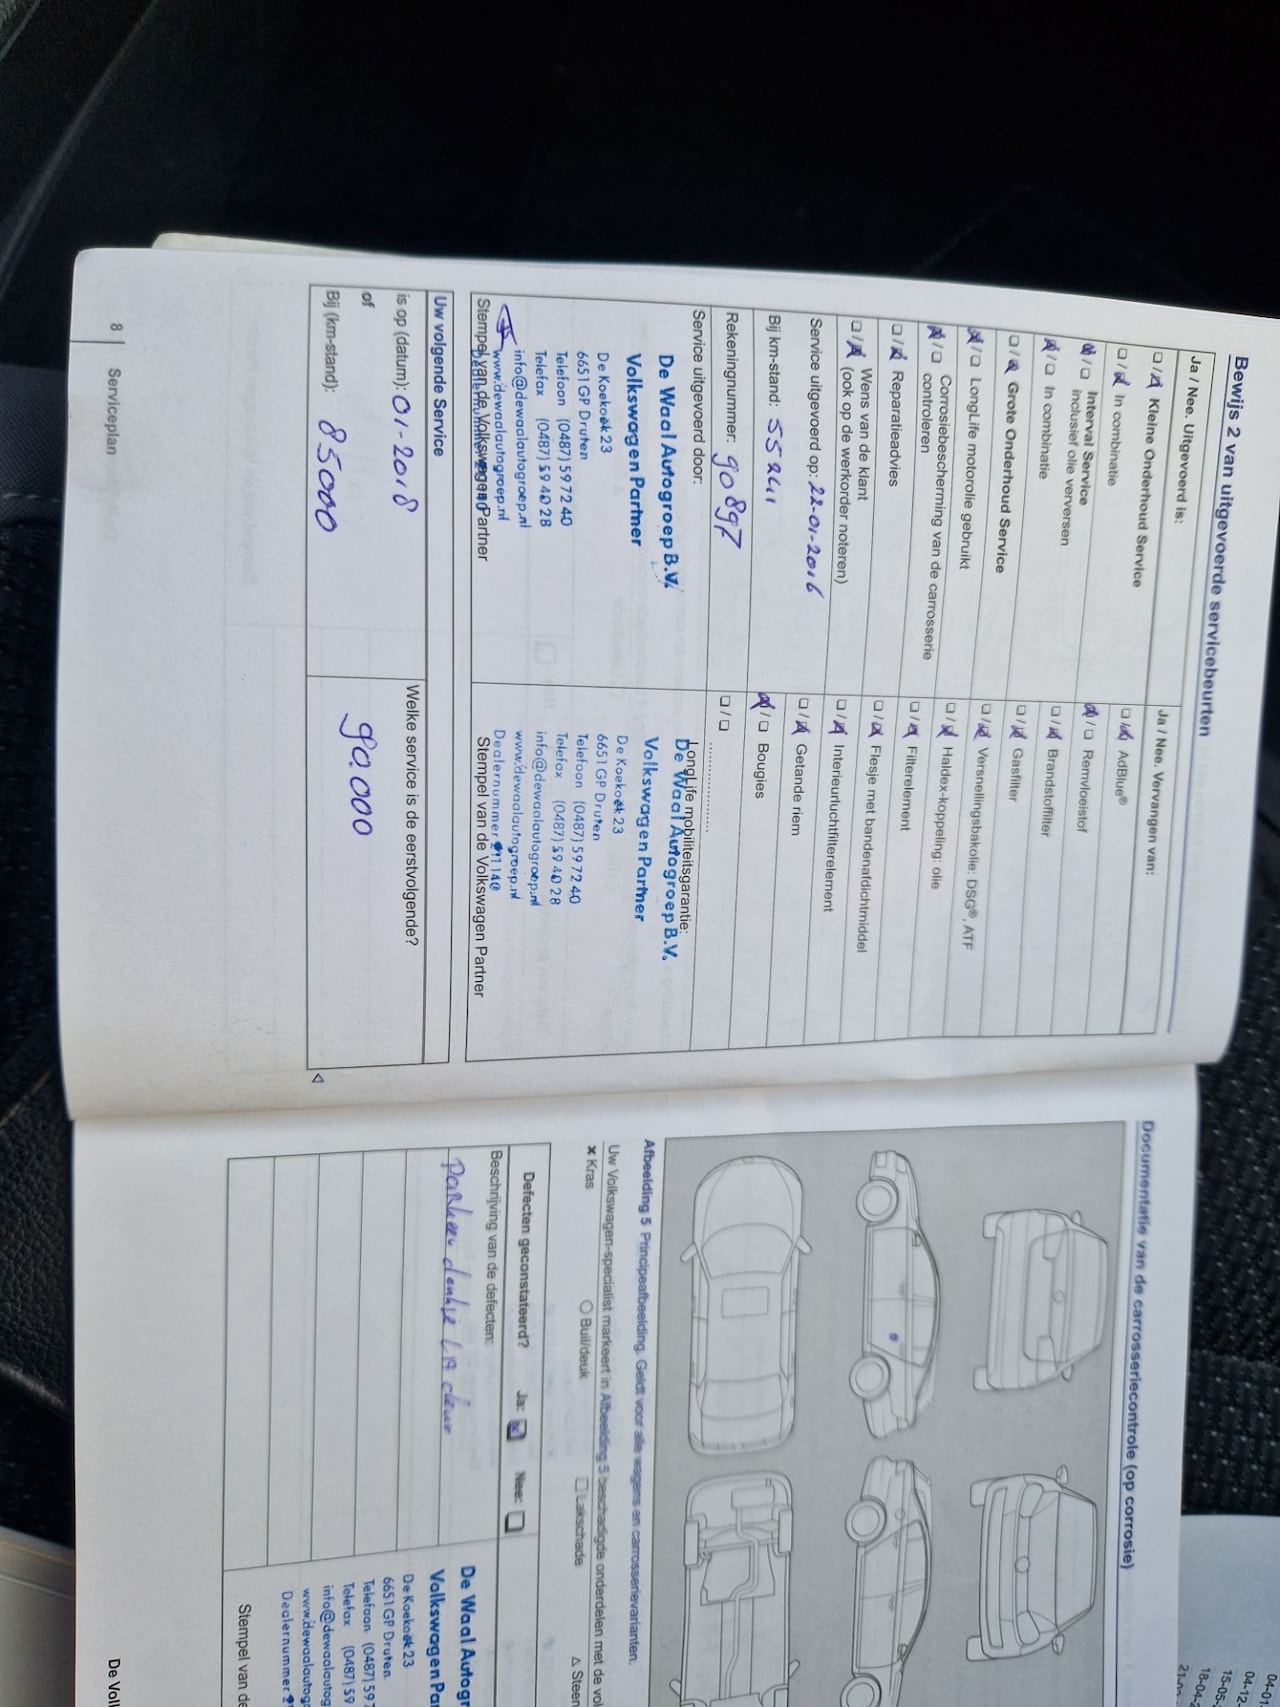 Bewijs 2 van uitgevoerde servicebeurten
Ja / Nee. Uitgevoerd is:
Kleine Onderhoud Service
In combinatie
Interval Service
inclusief olie verversen
In combinatie
Grote Onderhoud Service
LongLife motorolie gebruikt
Corrosiebescherming van de carrosserie
controleren
Reparatieadvies
Wens van de klant
(ook op de werkorder noteren)
Service uitgevoerd op: 22-01-2016
Bij km-stand: 55241
Rekeningnummer: 90897
Service uitgevoerd door:
De Waal Autogroep B.V.
Volkswagen Partner
De Koekoek 23
6651 GP Druten
Telefoon (0487) 59 72 40
Telefax (0487) 59 40 28
info@dewaalautogroep.nl
www.dewaalautogroep.nl
Stempel van de Volkswagen Partner
Ja / Nee. Vervangen van:
AdBlue®
Remvloeistof
Brandstoffilter
Gasfilter
Versnellingsbakolie: DSG®, ATF
Haldex-koppeling: olie
Filterelement
Flesje met bandenafdichtmiddel
Interieurluchtfilterelement
Getande riem
Bougies
LongLife mobiliteitsgarantie:
De Waal Autogroep B.V.
Volkswagen Partner
De Koekoek 23
6651 GP Druten
Telefoon (0487) 59 72 40
Telefax (0487) 59 40 28
info@dewaalautogroep.nl
www.dewaalautogroep.nl
Dealernummer 21140
Stempel van de Volkswagen Partner
Uw volgende Service
is op (datum): 01-2018
of
Bij (km-stand): 85000
Welke service is de eerstvolgende?
90.000
8 Serviceplan
Documentatie van de carrosseriecontrole (op corrosie)
Afbeelding 5 Principeafbeelding. Geldt voor alle wagens en carrosserievarianten.
Uw Volkswagen-specialist markeert in Afbeelding 5 beschadigde onderdelen met de vol
Kras
Buil/deuk
Lakschade
Steen
Defecten geconstateerd? Ja: Nee:
Beschrijving van de defecten:
Parkeer deukje LA deur
De Waal Autogr
Volkswagen Par
De Koekoek 23
6651 GP Druten
Telefoon (0487) 59 7
Telefax (0487) 59
info@dewaalautog
www.dewaalautog
Dealernummer 2
Stempel van de
De Vol
04-01
04-12
15-05
18-04-2